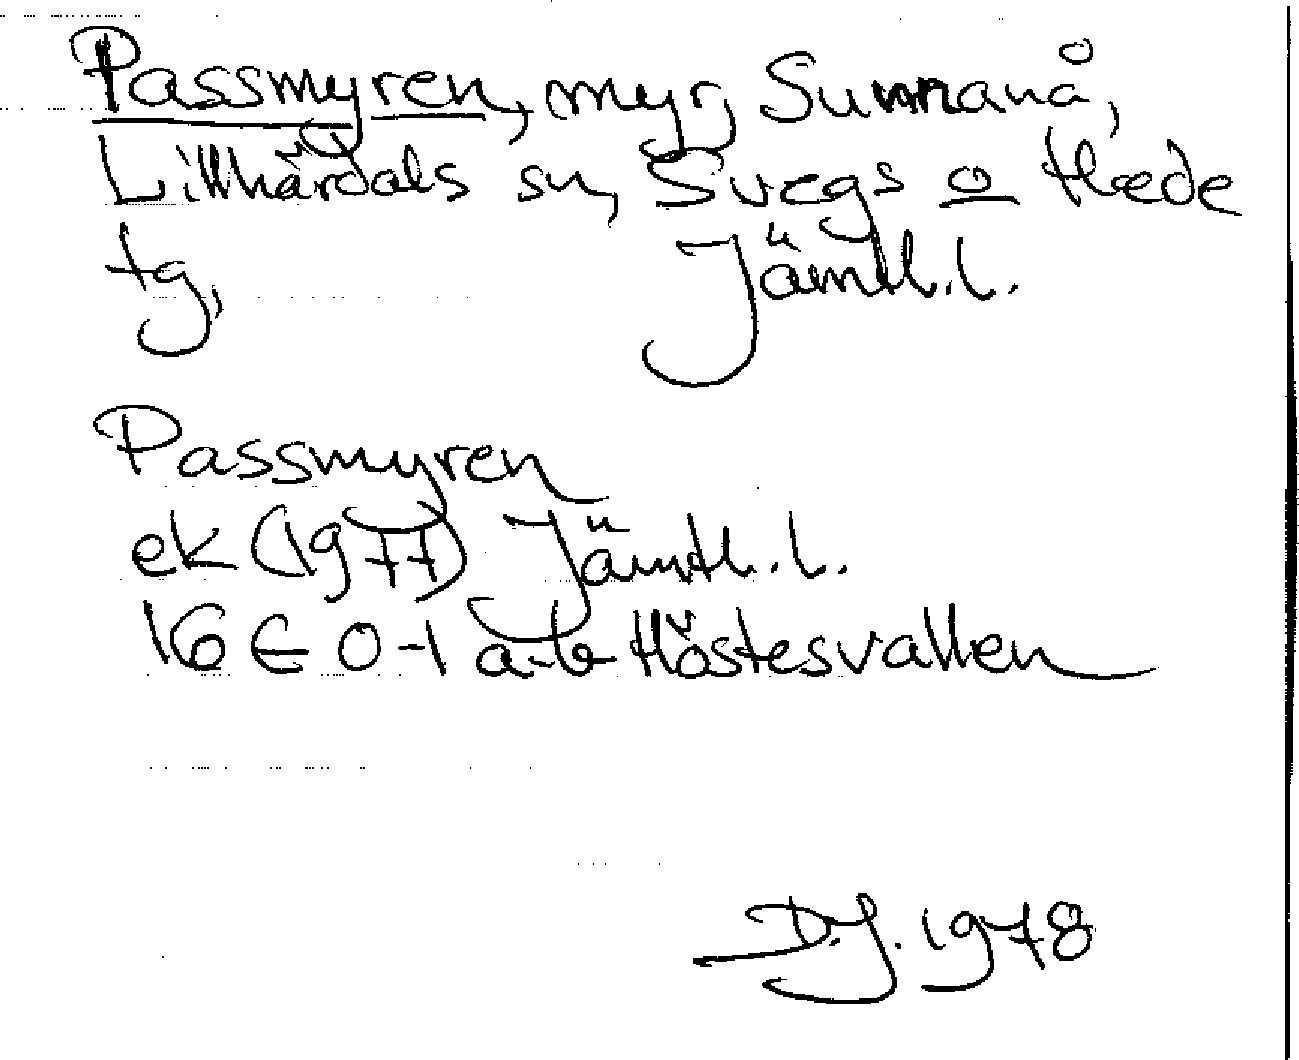 Passmyren, myr, Sunnanå,
Lillhärdals sn, Svegs o Hede
tg, Jämtl.l.
Passmyren
ek (1977) Jämtl.l.
16 E 0-1 a-b Höstesvallen
D.J. 1978